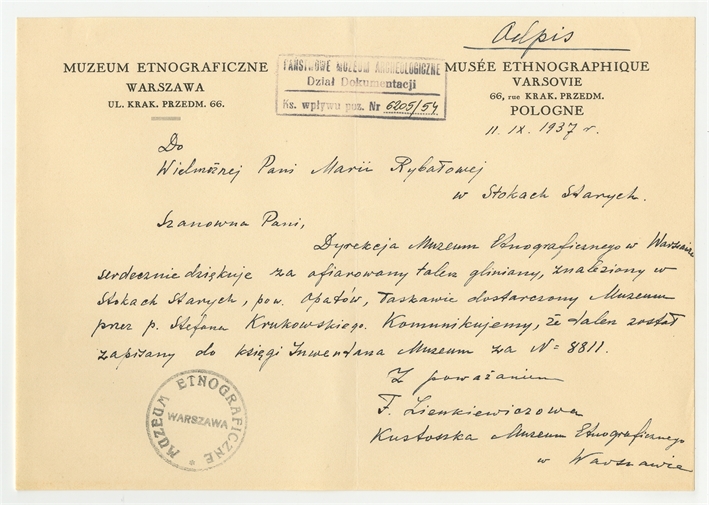 Odpis
MUZEUM ETNOGRAFICZNE
WARSZAWA
UL. KRAK. PRZEDM. 66.
PAŃSTWOWE MUZEUM ARCHEOLOGICZNE
Dział Dokumentacji
Ks. wpływu poz. Nr 6205/54
MUSÉE ETHNOGRAPHIQUE
VARSOVIE
66, rue KRAK. PRZEDM.
POLOGNE
11. IX. 1937 r.
Do
Wielmożnej Pani Marii Rybałowej
w Stokach Starych.
Szanowna Pani,
Dyrekcja Muzeum Etnograficznego w Warszawie
serdecznie dziękuje za ofiarowany talerz gliniany, znaleziony w
Stokach Starych, pow. Opatów, łaskawie dostarczony Muzeum
przez p. Stefana Krukowskiego. Komunikujemy, że talerz został
zapisany do księgi Inwentarza Muzeum za N= 8811.
Z poważaniem
F. Zienkiewiczowa
Kustoszka Muzeum Etnograficznego
w Warszawie
MUZEUM ETNOGRAFICZNE
WARSZAWA